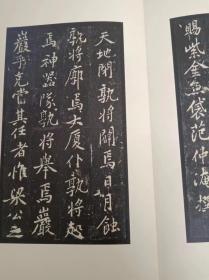 賜紫金魚袋范仲淹撰
天地閉孰將闢焉日月蝕
孰將廓焉大厦仆孰將起
焉神器墜孰將舉焉巖
巖乎克當其任者惟梁公之